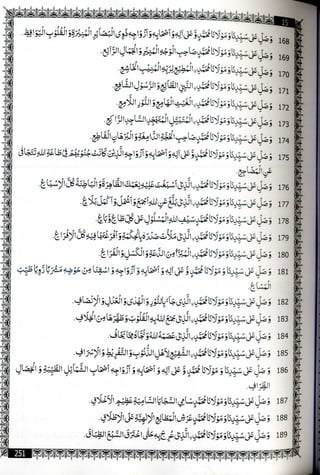 15
168 وَصَلِّ عَلىٰ سَيِّدِنَا وَمَوْلَانَا مُحَمَّدٍ وَّ عَلىٰ آلِهٖ وَ أَصْحَابِهٖ وَ أَزْوَاجِهٖ ذَوِی الْبَصَآئِرِ الْمُنِيْرَةِ وَ الْقُلُوْبِ
169 وَصَلِّ عَلىٰ سَيِّدِنَا وَمَوْلَانَا مُحَمَّدٍ، صَاحِبِ الْوَجْهِ الْمُنِيْرِ وَ الْجَمَالِ الرَّائِعِ۔
170 وَصَلِّ عَلىٰ سَيِّدِنَا وَمَوْلَانَا مُحَمَّدٍ، الْمُطِيْعِ لِرَبِّهِ الْمُنِيْبِ الْخَاشِعِ۔
171 وَصَلِّ عَلىٰ سَيِّدِنَا وَمَوْلَانَا مُحَمَّدٍ، النَّبِيِّ الشَّافِعِ وَ الرَّسُوْلِ
172 وَصَلِّ عَلىٰ سَيِّدِنَا وَمَوْلَانَا مُحَمَّدٍ، الْغَيْثِ الْهَامِعِ وَ النُّوْرِ اللَّامِعِ۔
173 وَصَلِّ عَلىٰ سَيِّدِنَا وَمَوْلَانَا مُحَمَّدٍ، الْمُتَبَتِّلِ الْمُتَهَجِّدِ السَّاجِدِ الرَّاكِعِ۔
174 وَصَلِّ عَلىٰ سَيِّدِنَا وَمَوْلَانَا مُحَمَّدٍ، صَاحِبِ الْحُجَّةِ وَ الْبُرْهَانِ الْقَاطِعِ۔
175 وَصَلِّ عَلىٰ سَيِّدِنَا وَمَوْلَانَا مُحَمَّدٍ وَّ عَلىٰ آلِهٖ وَ أَصْحَابِهٖ وَ أَزْوَاجِهِ الَّذِيْنَ كَانَتْ جُنُوْبُهُمْ فِیْ طَاعَةِ اللهِ تَتَجَافٰى
عَنِ الْمَضَاجِعِ۔
176 وَصَلِّ عَلىٰ سَيِّدِنَا وَمَوْلَانَا مُحَمَّدٍ، الَّذِیْ أَسْبَغْتَ عَلَيْهِ نِعَمَكَ الظَّاهِرَةَ وَ الْبَاطِنَةَ كُلَّ الْإِسْبَاغِ۔
177 وَصَلِّ عَلىٰ سَيِّدِنَا وَمَوْلَانَا مُحَمَّدٍ، الَّذِیْ بَلَّغَ عَنِ اللهِ وَ أَكْمَلَ بَلَاغٍ۔
178 وَصَلِّ عَلىٰ سَيِّدِنَا وَمَوْلَانَا مُحَمَّدٍ، سَيْفِ اللهِ الْمَسْلُوْلِ عَلىٰ كُلِّ طَاغٍ وَّ بَاغٍ۔
179 وَصَلِّ عَلىٰ سَيِّدِنَا وَمَوْلَانَا مُحَمَّدٍ، الَّذِیْ مَلَأْتَ صَدْرَهٗ بِالْحِكْمَةِ وَ أَفْرَغْتَهَا فِيْهِ كُلَّ الْإِفْرَاغِ۔
180 وَصَلِّ عَلىٰ سَيِّدِنَا وَمَوْلَانَا مُحَمَّدٍ، الْمُبَرَّءِ مِنَ الدَّعَةِ وَ الْكَسَلِ وَ الْفَرَاغِ۔
181 وَ صَلِّ عَلىٰ سَيِّدِنَا وَ مَوْلَانَا مُحَمَّدٍ وَّ عَلىٰ آلِهٖ وَ أَصْحَابِهٖ وَ أَزْوَاجِهٖ وَ اسْقِنَا مِنْ حَوْضِهٖ مَشْرَبًا رَّوِيًّا طَيِّبَ
الْمَسَاغِ۔
182 وَصَلِّ عَلىٰ سَيِّدِنَا وَمَوْلَانَا مُحَمَّدٍ، الَّذِیْ جَآءَ بِالنُّوْرِ وَ الْهُدٰى وَ الْعَدْلِ وَ الْإِنْصَافِ۔
183 وَصَلِّ عَلىٰ سَيِّدِنَا وَمَوْلَانَا مُحَمَّدٍ، الَّذِیْ جَمَعَ اللهُ بِهِ الْقُلُوْبَ وَ طَهَّرَهَا مِنَ الْخِلَافِ۔
184 وَصَلِّ عَلىٰ سَيِّدِنَا وَمَوْلَانَا مُحَمَّدٍ، الَّذِیْ عَصَمَهُ اللهُ وَ نَجَّاهُ مِمَّا يَخَافُ۔
185 وَصَلِّ عَلىٰ سَيِّدِنَا وَمَوْلَانَا مُحَمَّدٍ، الشَّفِيْعِ لِأَهْلِ الذُّنُوْبِ وَ التَّفْرِيْطِ وَ الْإِسْرَافِ۔
186 وَ صَلِّ عَلىٰ سَيِّدِنَا وَ مَوْلَانَا مُحَمَّدٍ وَّ عَلىٰ آلِهٖ وَ أَصْحَابِهٖ وَ أَزْوَاجِهٖ أَصْحَابِ الشَّمَآئِلِ الطَّيِّبَةِ وَ الْخِصَالِ
الظِّرَافِ۔
187 وَصَلِّ عَلىٰ سَيِّدِنَا وَمَوْلَانَا مُحَمَّدٍ، سَامِی السَّجَايَا السَّامِيَةِ عَظِيْمِ الْأَخْلَاقِ۔
188 وَصَلِّ عَلىٰ سَيِّدِنَا وَمَوْلَانَا مُحَمَّدٍ، الْإِلٰهِيَّةِ عَلَى الْإِطْلَاقِ۔
189 وَصَلِّ عَلىٰ سَيِّدِنَا وَمَوْلَانَا مُحَمَّدٍ، الَّذِیْ عُرِجَ بِهٖ حَتَّى اخْتَرَقَ السَّبْعَ الطِّبَاقَ۔
251